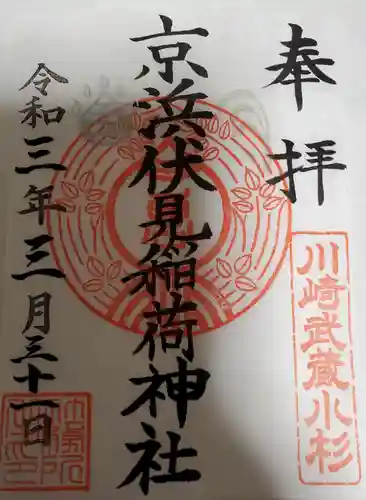 奉拝
川崎武蔵小杉
京浜伏見稲荷神社
令和三年三月三十一日